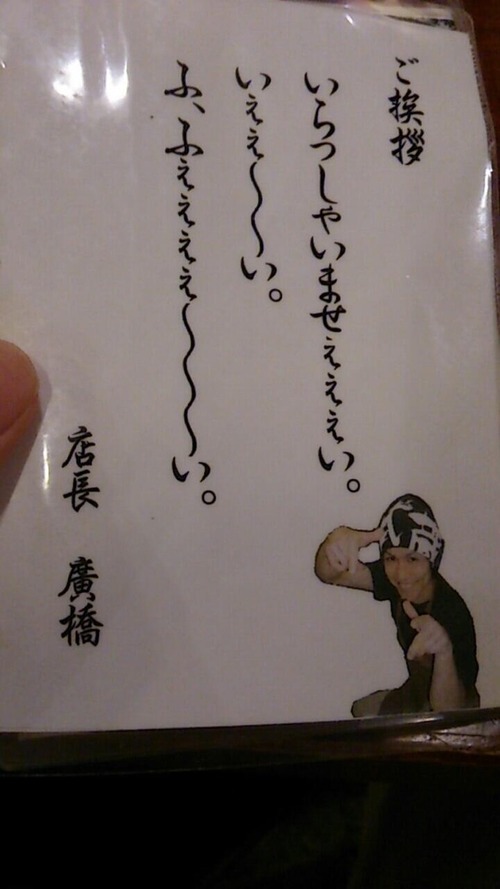 ご挨拶
いらっしゃいませぇぇぇい。
いぇぇ～～い。
ふ、ふぇぇぇぇ～～～～い。
店長 廣橋